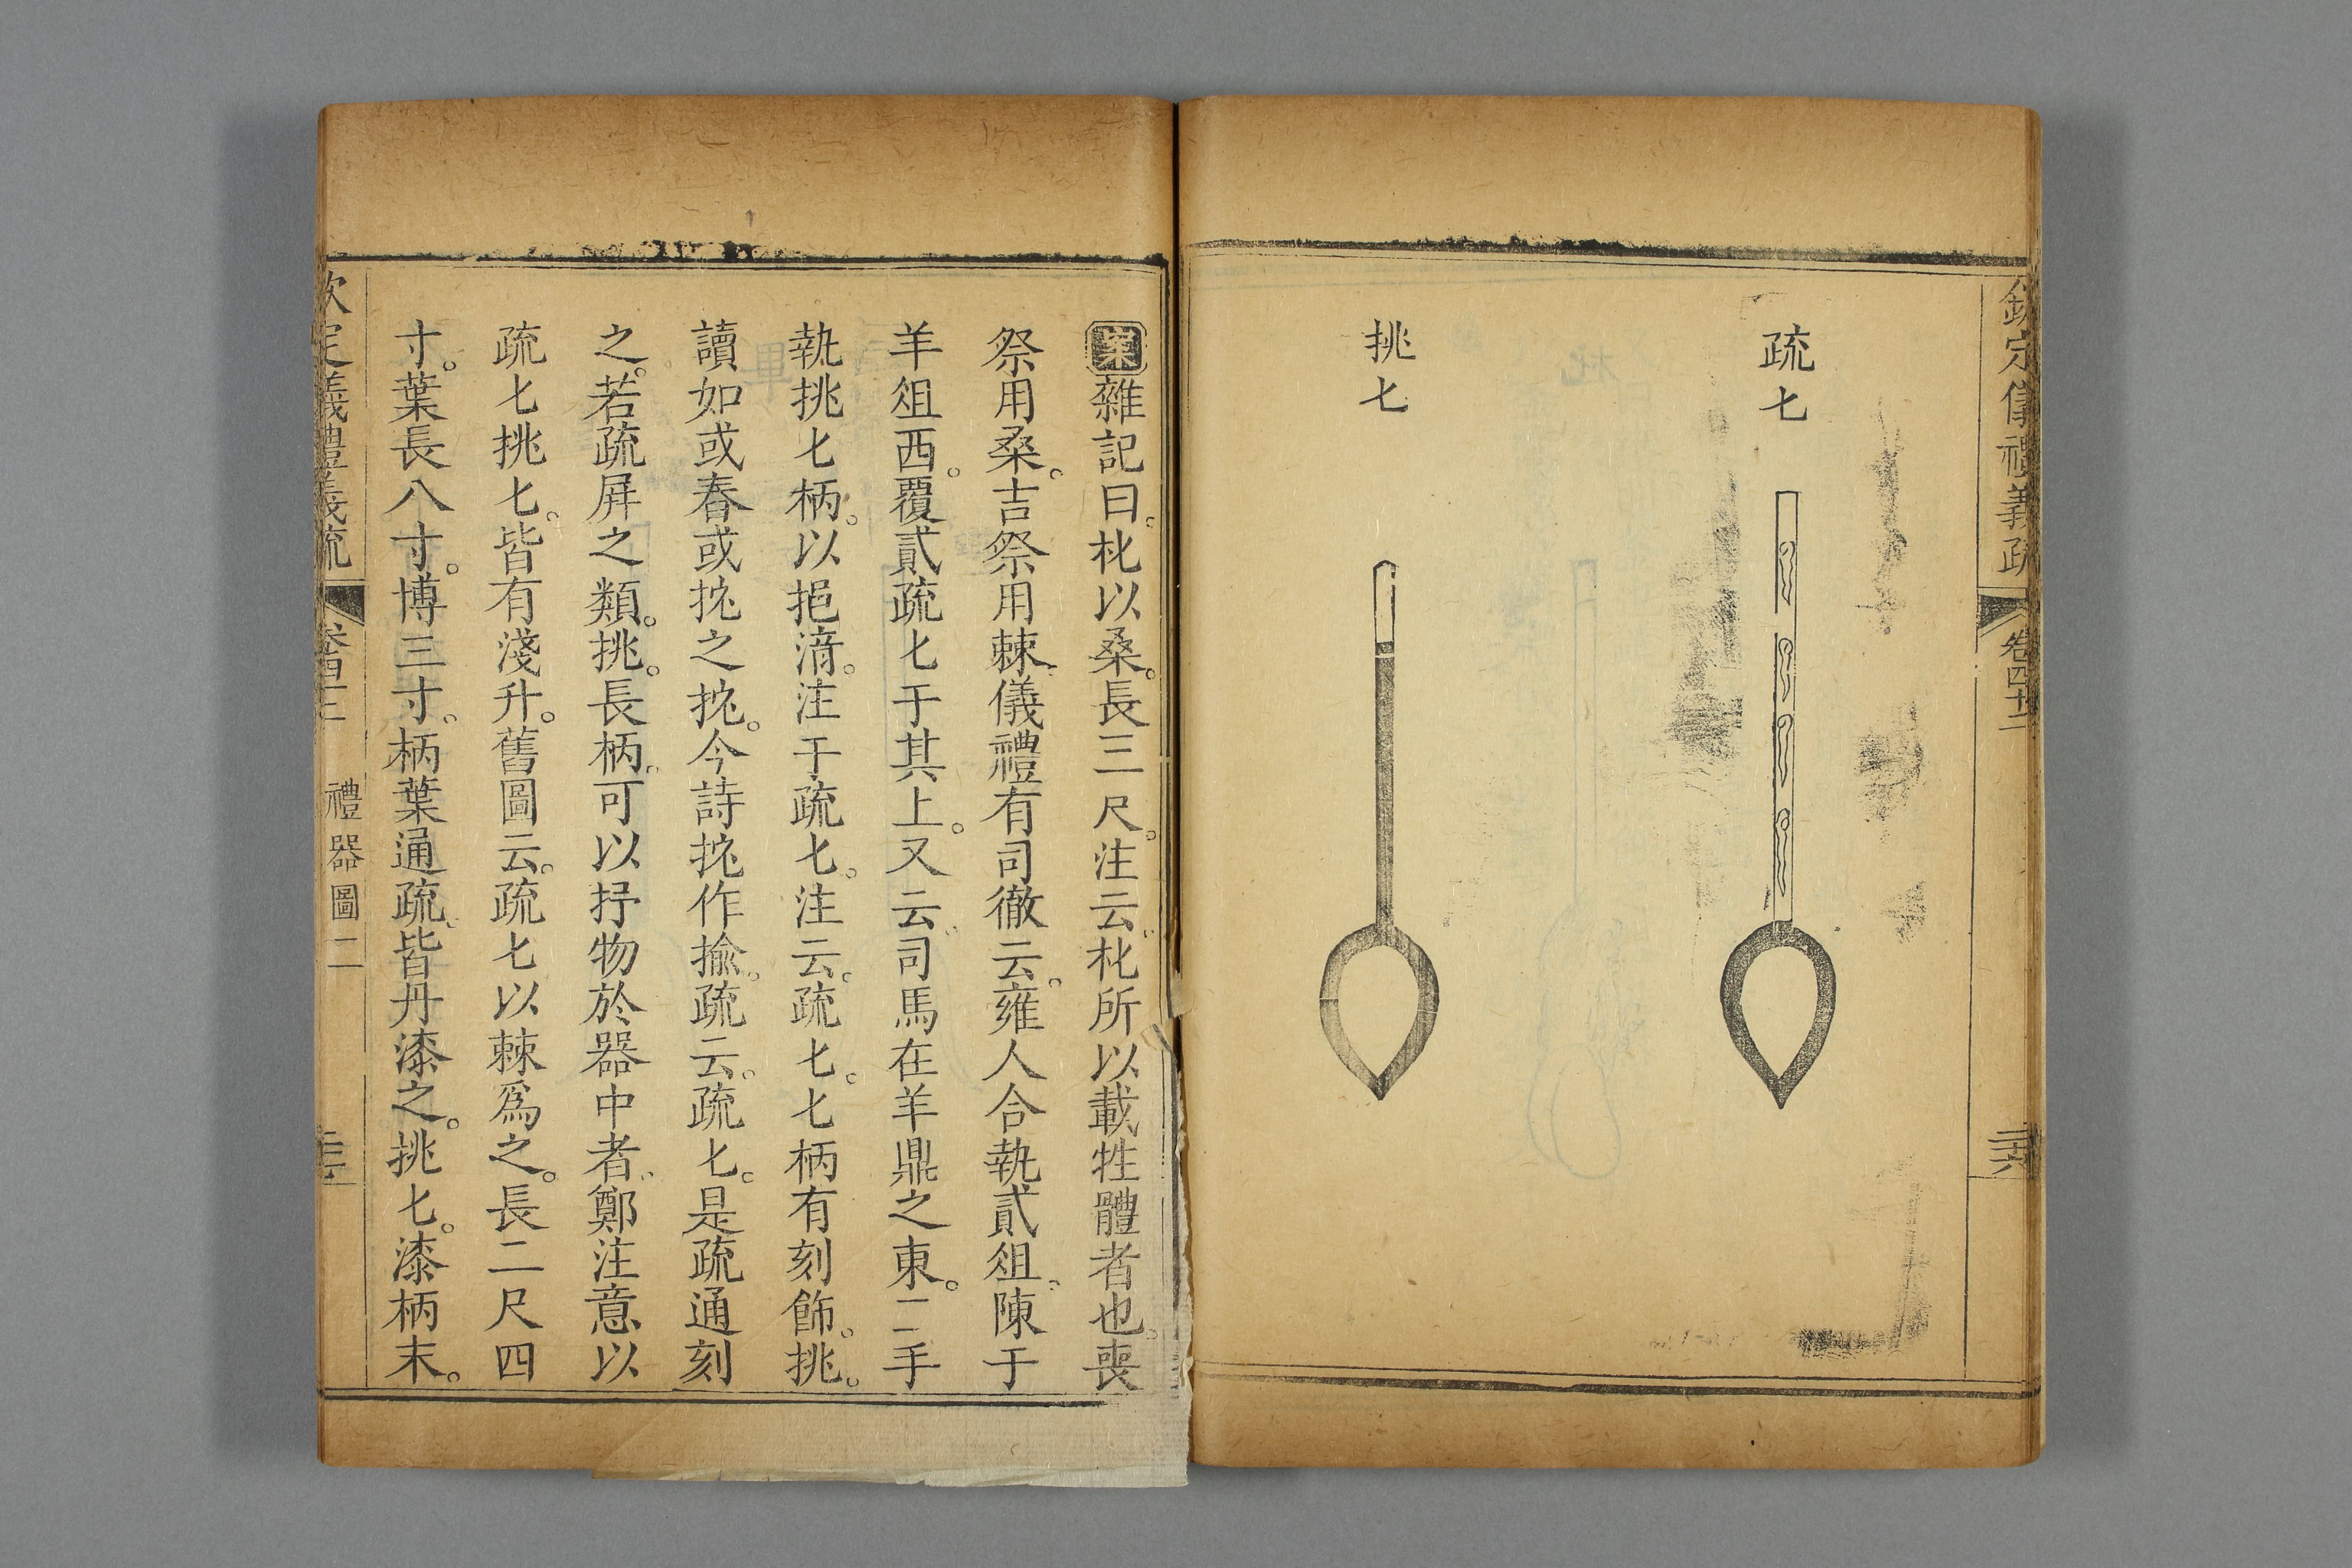 欽定儀禮義疏 卷四十二 二十六
疏匕
挑匕
案雜記曰。朼以桑。長三尺。注云。朼所以載牲體者也。喪
祭用桑。吉祭用棘。儀禮有司徹云。雍人合執貳俎。陳于
羊俎西。覆貳疏匕于其上。又云。司馬在羊鼎之東。二手
執挑匕柄。以挹湇。注于疏匕。注云。疏匕。匕柄有刻飾。挑。
讀如或舂或抌之抌。今詩抌作揄。疏云。疏匕。是疏通刻
之。若疏屛之類。挑。長柄。可以抒物於器中者。鄭注意以
疏匕挑匕。皆有淺升。舊圖云。疏匕以棘爲之。長二尺四
寸。葉長八寸。博三寸。柄葉通疏。皆丹漆之。挑匕。漆柄末。
欽定儀禮義疏 禮器圖二